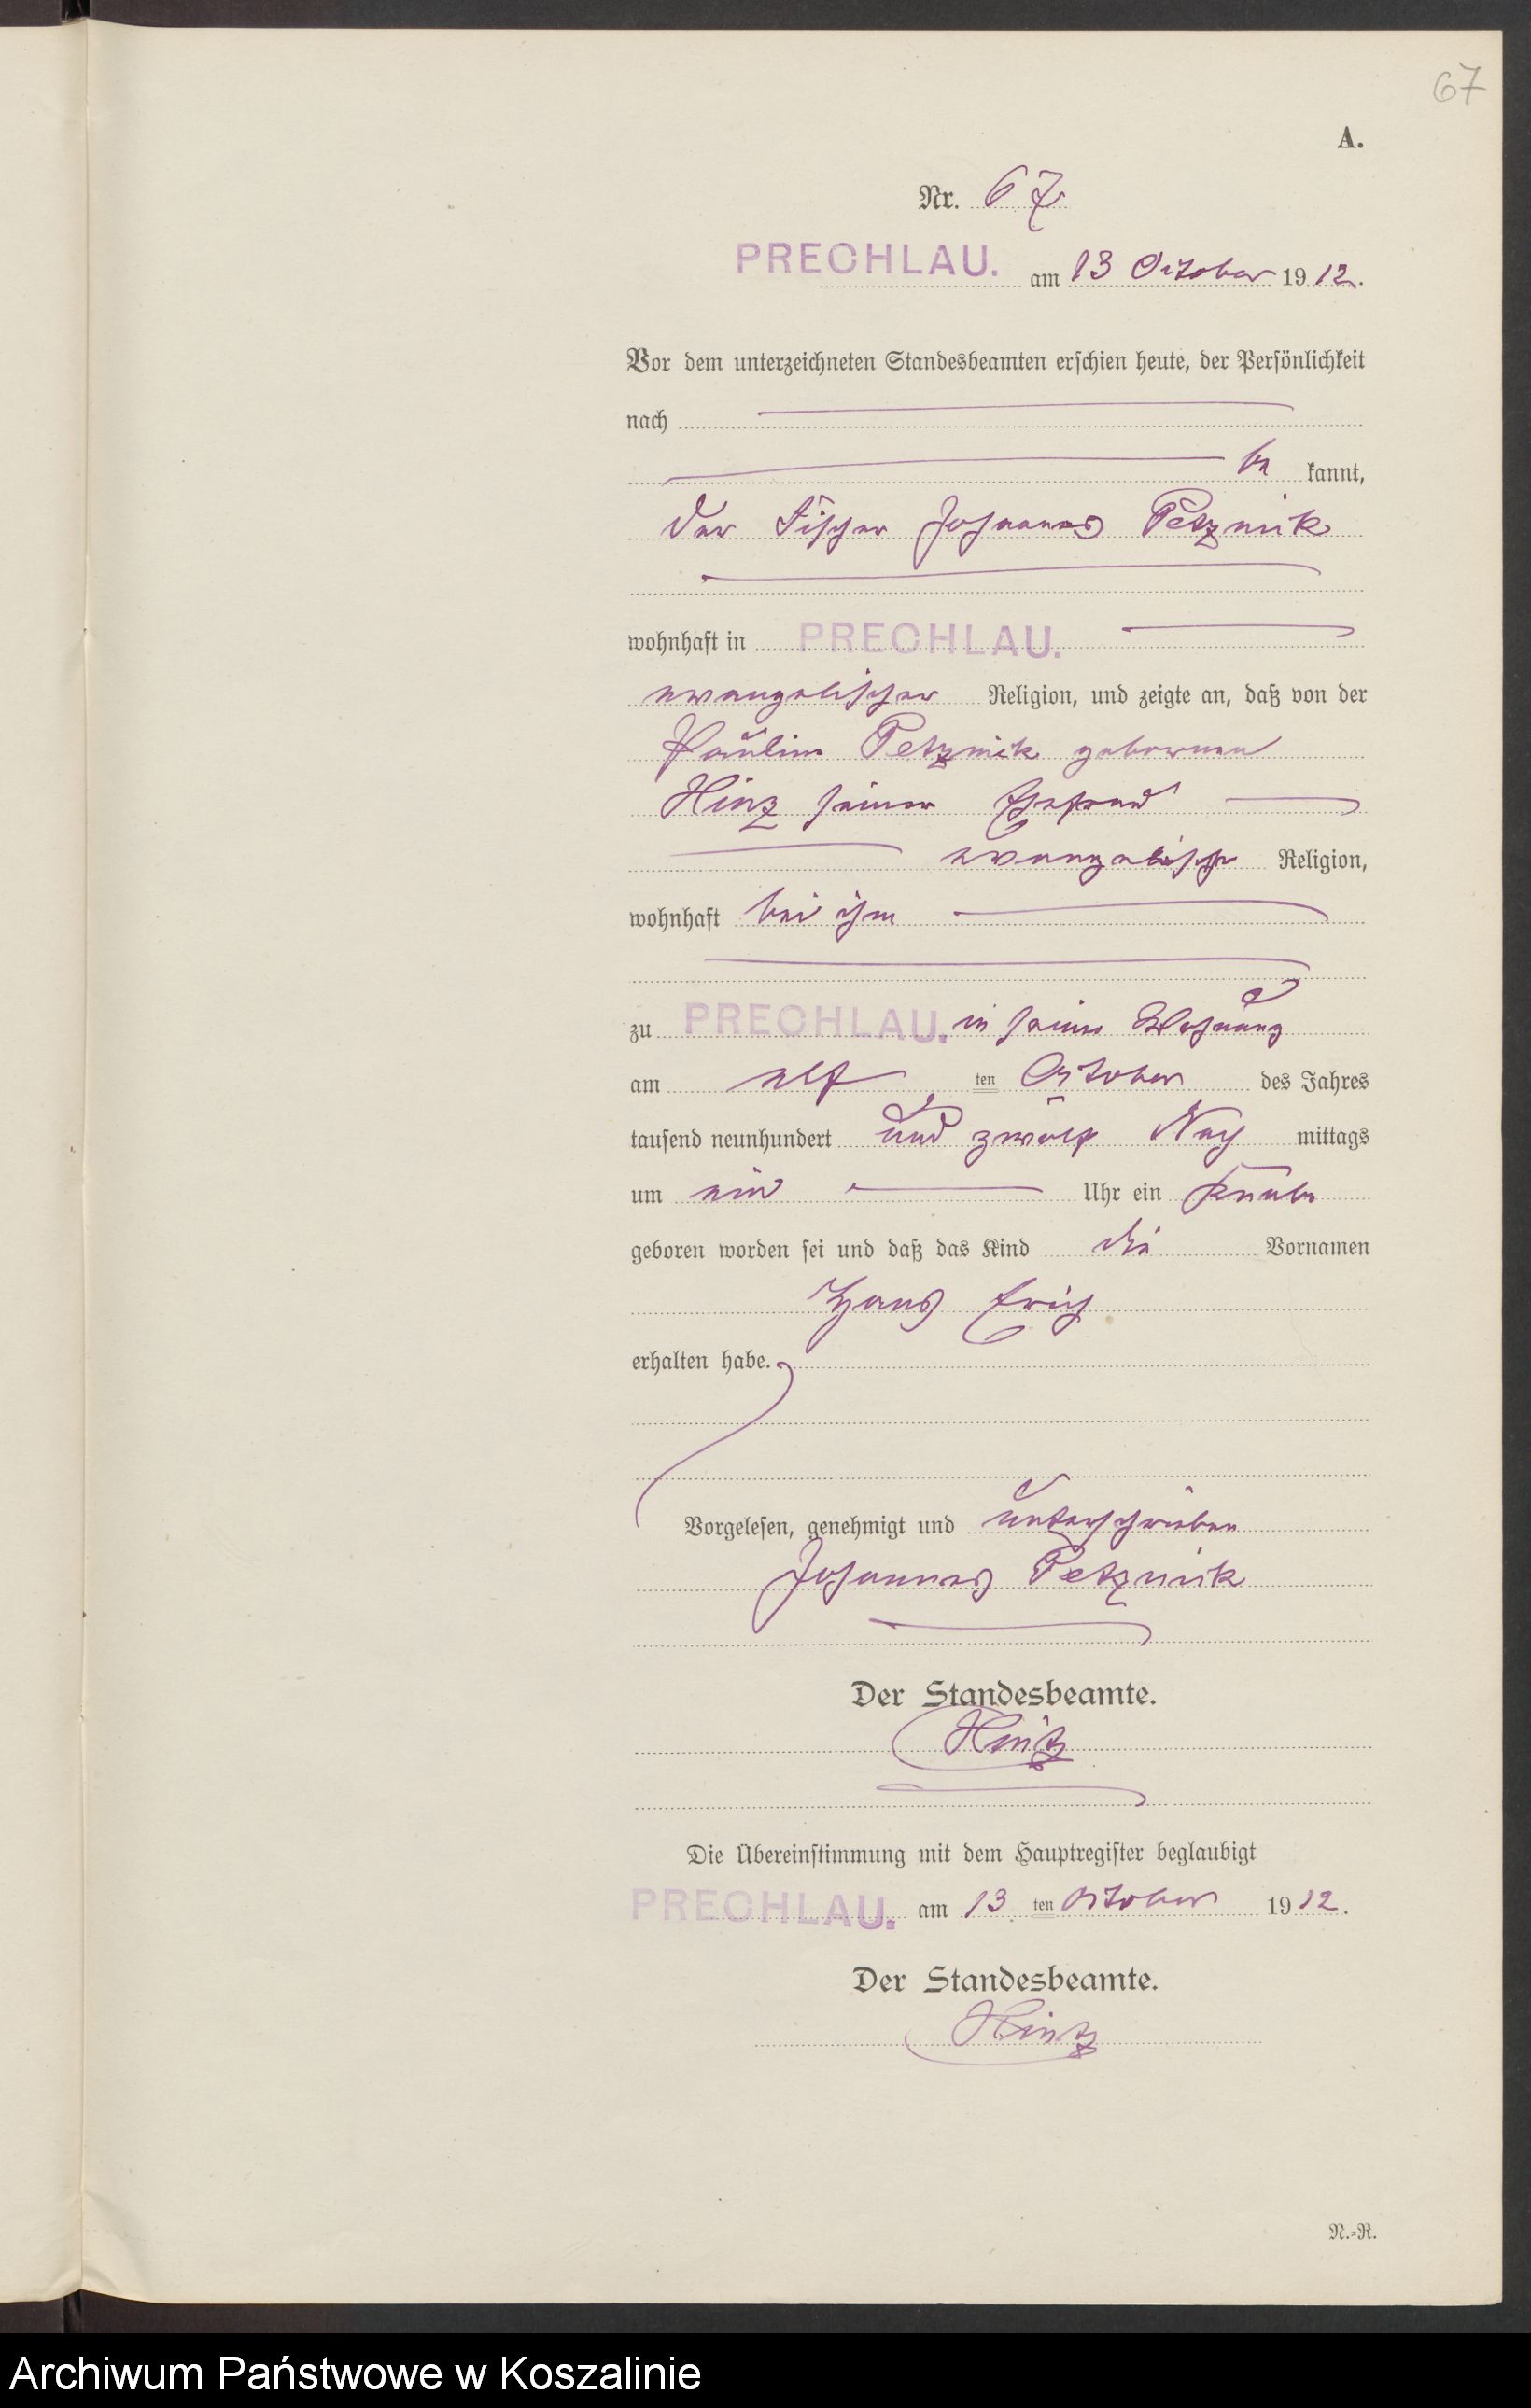 67
A.
Nr. 67
PRECHLAU. am 13 October 1912.
Vor dem unterzeichneten Standesbeamten erschien heute, der Persönlichkeit
nach
be kannt,
der Fischer Johannes Petznik
wohnhaft in PRECHLAU.
evangelischer Religion, und zeigte an, daß von der
Pauline Petznik geborenen
Hinz seiner Ehefrau
evangelischer Religion,
wohnhaft bei ihm
zu PRECHLAU. in seiner Wohnung
am elf ten October des Jahres
tausend neunhundert und zwölf Nach mittags
um ein Uhr ein Knabe
geboren worden sei und daß das Kind die Vornamen
Hans Erich
erhalten habe.
Vorgelesen, genehmigt und unterschrieben
Johannes Petznik
Der Standesbeamte.
Hintz
Die Übereinstimmung mit dem Hauptregister beglaubigt
PRECHLAU. am 13 ten October 1912.
Der Standesbeamte.
Hintz
N.=R.
Archiwum Państwowe w Koszalinie